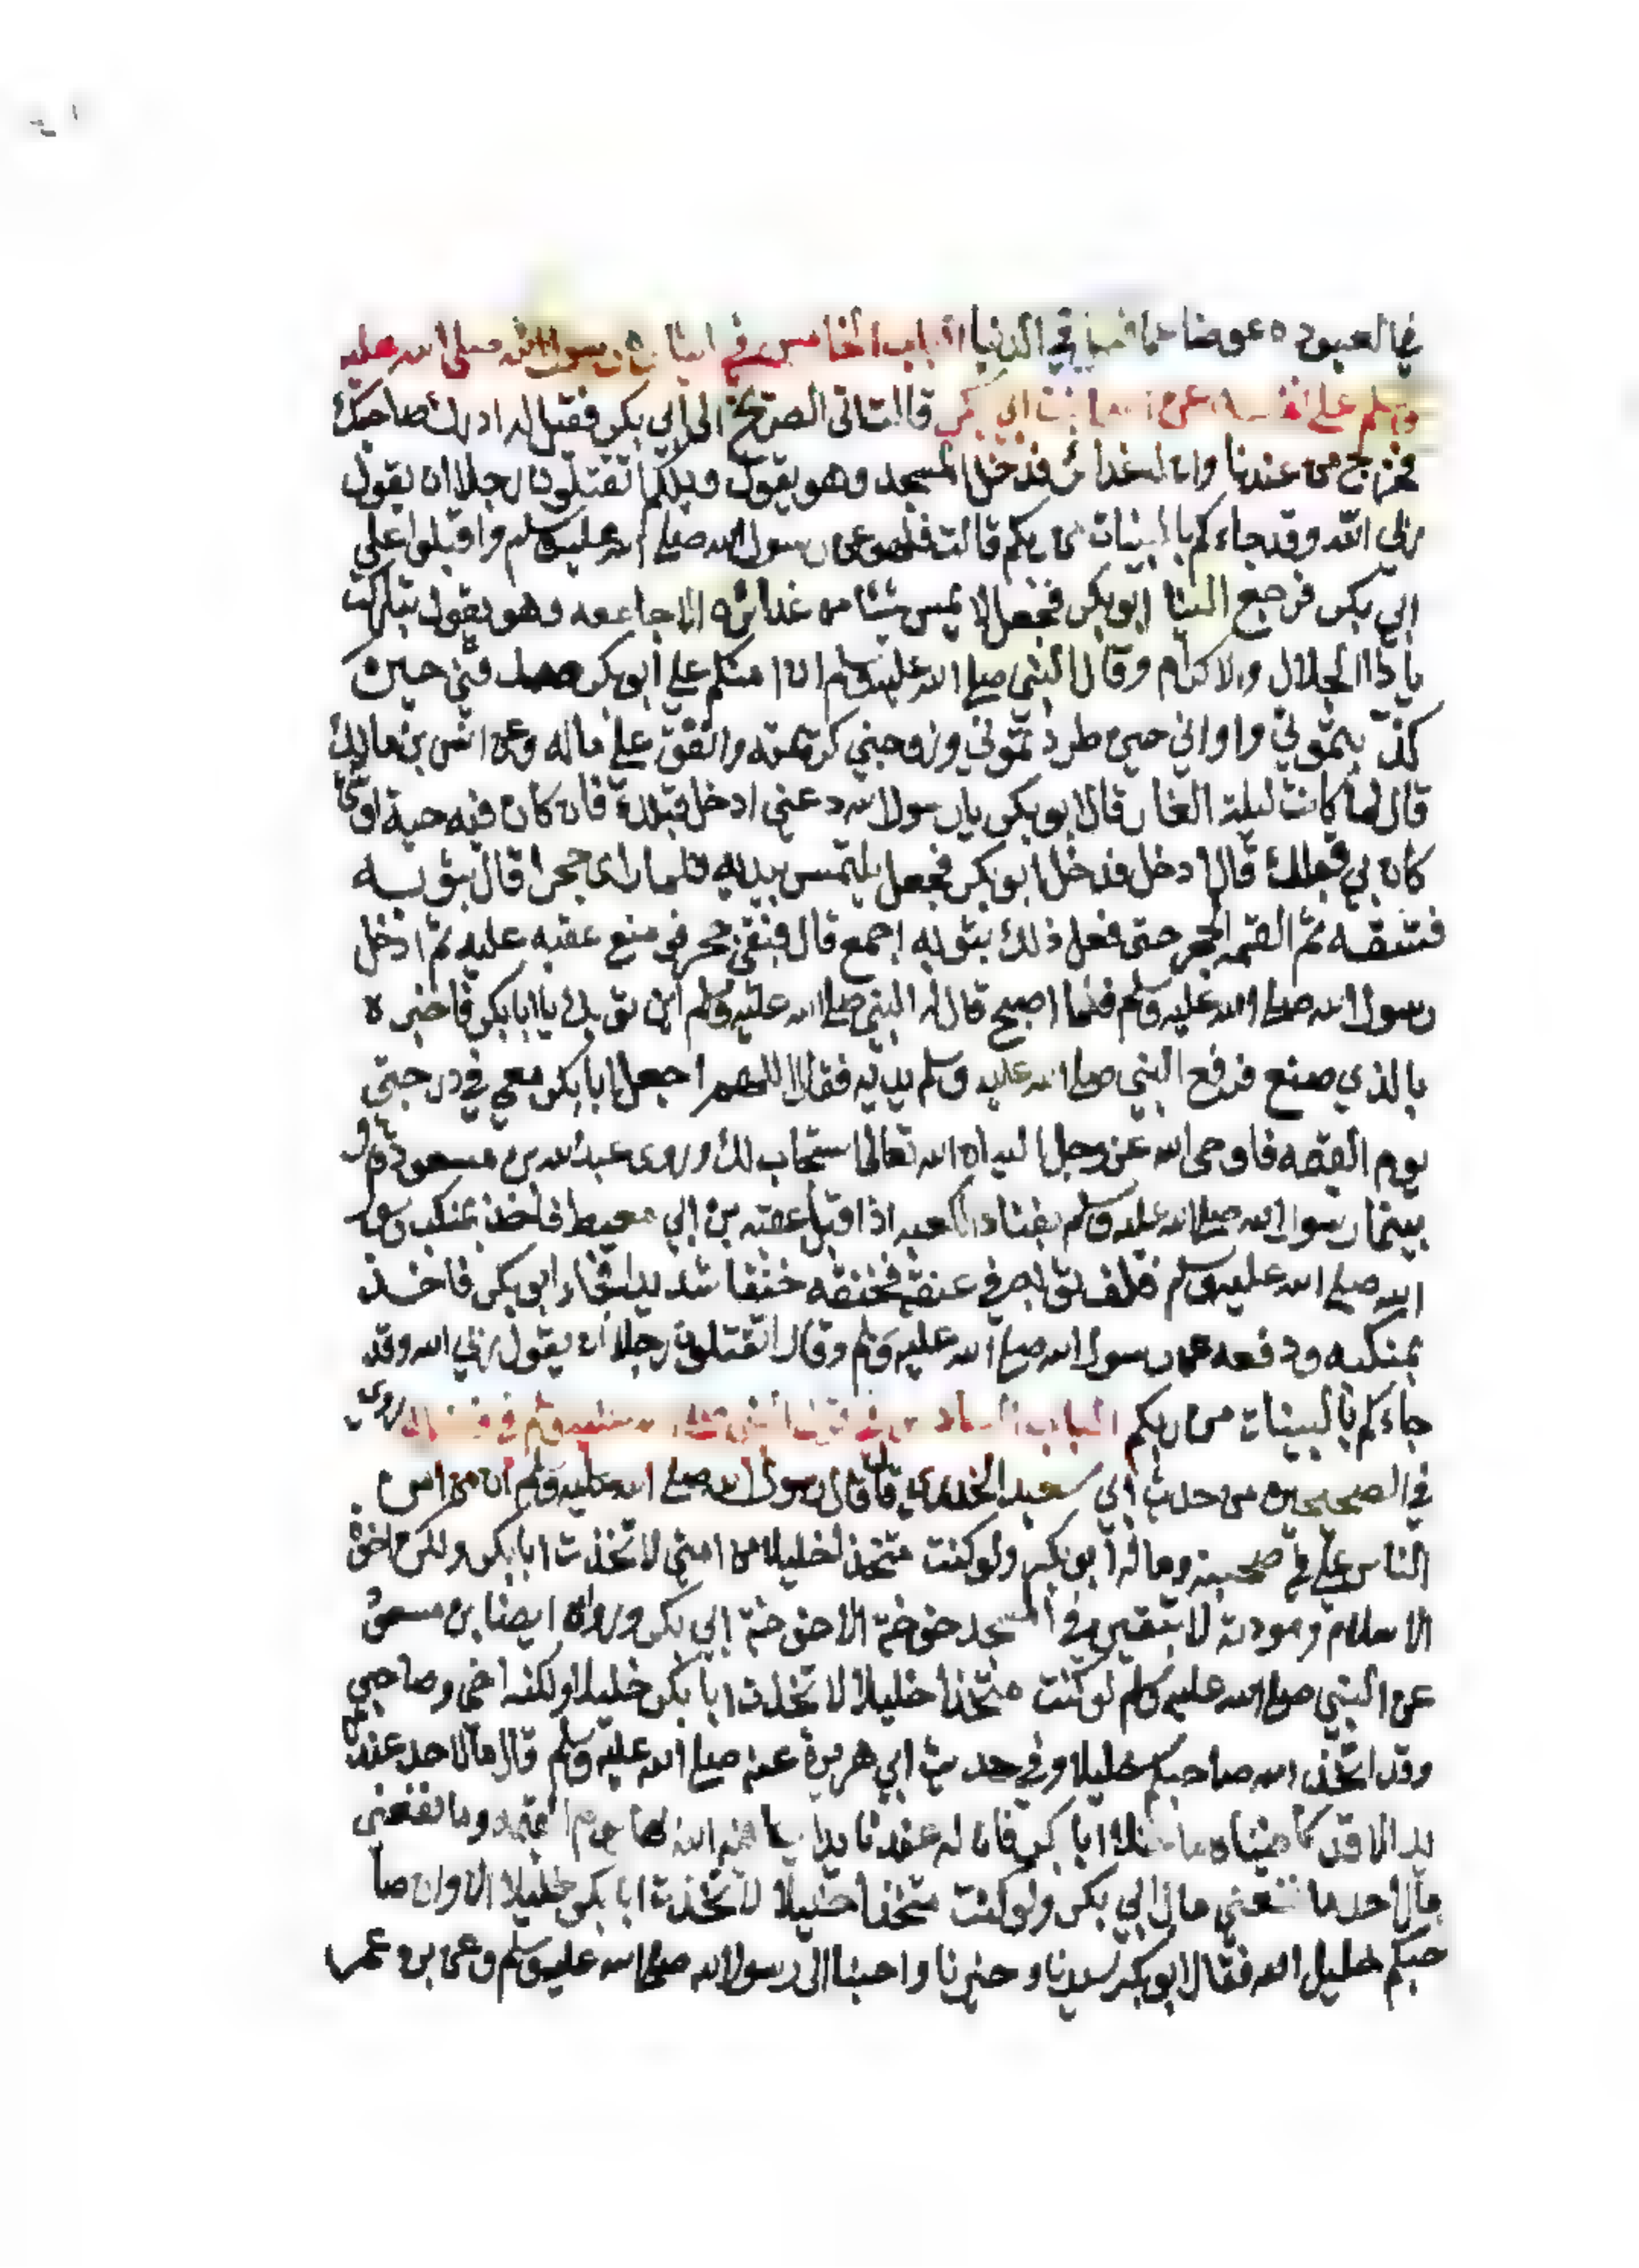 في الدنيا الباب الخامس في ايثا رسول الله صلى الله عليه
وسلم على نفسه عن اسما بنت ابي بكر قالت اتى الصريخ الى ابي بكر فقيل له ادرك صاحبك
فخرج من عندنا وان له غدائر فدخل المسجد وهو يقول ويلكم اتقتلون رجلا ان يقول
ربي الله وقد جاءكم بالبينات من ربكم قالت فلهوا عن رسول الله صلى الله عليه وسلم واقبلوا على
ابي بكر فرجع الينا ابو بكر فجعل لا يمس شيا من غدائره الا جا معه وهو يقول تباركت
يا ذا الجلال والاكرام وقال النبي صلى الله عليه وسلم ان امنكم على ابو بكر حين
كذبتموني واواني حين طردتموني وزوجني كريمته وانفق علي ماله وعن انس بن مالك
قال لما كانت ليلة الغار قال ابو بكر يا رسول الله دعني ادخل قبلك فان كان فيه حية او شي
كان بي قبلك قال ادخل فدخل ابو بكر فجعل يلتمس بيديه فلما راى جحرا قال بثوبه
فشقه ثم القمه الجحر حتى فعل ذلك بثوبه اجمع قال فبقي جحر فوضع عقبه عليه ثم ادخل
رسول الله صلى الله عليه وسلم فلما اصبح قال له النبي صلى الله عليه وسلم اين ثوبك يا ابا بكر فاخبره
بالذي صنع فرفع النبي صلى الله عليه وسلم يديه فقال اللهم اجعل ابا بكر معي في درجتي
يوم القيمه فاوحى الله عز وجل اليه ان الله تعالى استجاب لك وروى عبد الله بن مسعود قال
بينما رسول الله صلى الله عليه وسلم بفناء الكعبه اذ اقبل عقبه بن ابي معيط فاخذ بمنكب رسول
الله صلى الله عليه وسلم فلف ثوبه في عنقه فخنقه خنقا شديدا فجاء ابو بكر فاخذ
بمنكبه ودفعه عن رسول الله صلى الله عليه وسلم وقال اتقتلون رجلا ان يقول ربي الله وقد
جاءكم بالبينات من ربكم الباب السادس في قول النبي صلى الله عليه وسلم في روي
في الصحيحين من حديث ابي سعيد الخدري قال قال رسول الله صلى الله عليه وسلم ان من امن
الناس علي في صحبته وماله ابو بكر ولو كنت متخذا خليلا من امتي لاتخذت ابا بكر ولكن اخوة
الاسلام ومودته لا يبقين في المسجد خوخة الا خوخة ابي بكر ورواه ايضا بن مسعود
عن النبي صلى الله عليه وسلم لو كنت متخذا خليلا لاتخذت ابا بكر خليلا ولكنه اخي وصاحبي
وقد اتخذ الله صاحبكم خليلا وفي حديث ابي هريرة عنه صلى الله عليه وسلم قال ما لاحد عندنا
يد الا وقد كافيناه ما خلا ابا بكر فان له عندنا يدا يكافيه الله بها يوم القيمه وما نفعني
مال احد ما نفعني مال ابي بكر ولو كنت متخذا خليلا لاتخذت ابا بكر خليلا الا وان صا
حبكم خليل الله فقال ابو بكر سيدنا وخيرنا واحبنا الى رسول الله صلى الله عليه وسلم وعن بن عمر